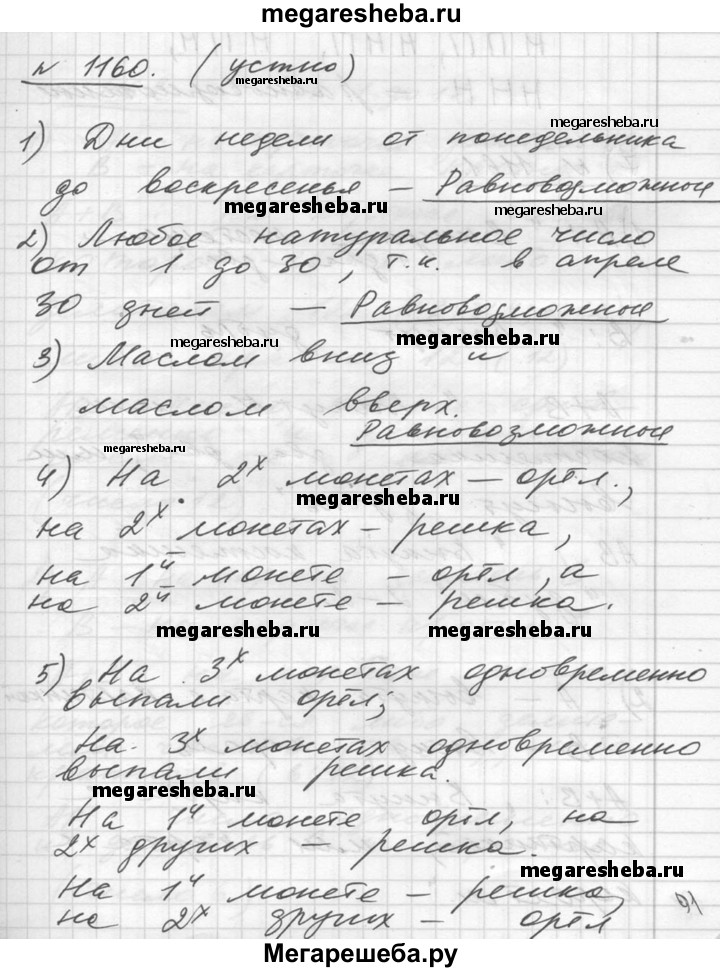 megaresheba.ru
№ 1160. (устно)
megaresheba.ru
megaresheba.ru
1) Дни недели от понедельника
до воскресенья – Равновозможные
megaresheba.ru
megaresheba.ru
2) Любое натуральное число
от 1 до 30, т.к. в апреле
30 дней – Равновозможные
megaresheba.ru
megaresheba.ru
3) Маслом вниз и
маслом вверх.
Равновозможные
megaresheba.ru
4) На 2х монетах – орёл.,
megaresheba.ru
на 2х монетах – решка,
на 1й монете – орёл, а
на 2й монете – решка.
megaresheba.ru
megaresheba.ru
5) На 3х монетах одновременно
выпали орёл;
На 3х монетах одновременно
выпали решка.
megaresheba.ru
На 1й монете орёл, на
2х других – решка.
megaresheba.ru
На 1й монете – решка,
на 2х других – орёл
91
Мегарешеба.ру